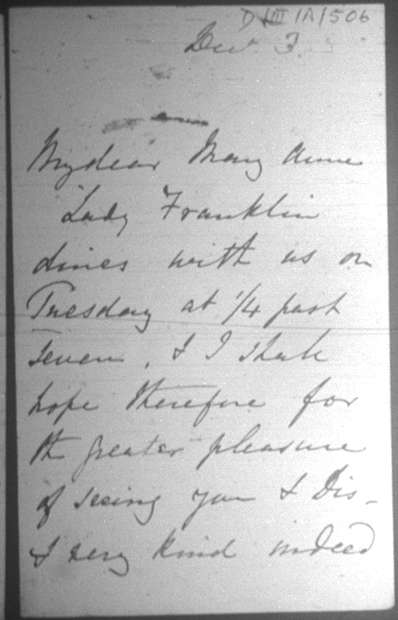 D/III/A/506
Dec. 3.
My dear Mary Anne
Lady Franklin
dines with us on
Tuesday at 1/4 past
seven, & I shall
hope therefore for
the greater pleasure
of seeing you & Dis -
& very kind indeed